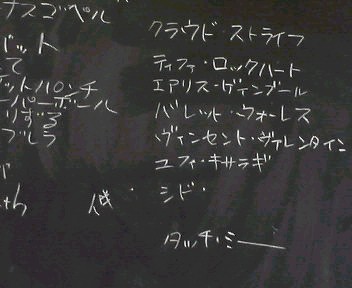 ナスゴペル
クラウド・ストライフ
ット
ティファ・ロックハート
て
エアリス・ゲインブール
ットパンチ
バレット・ウォーレス
ーパーボール
ヴィンセント・ヴァレンタイン
りずる
ブルラ
ユフィ・キサラギ
シド・
タッチ・ミー